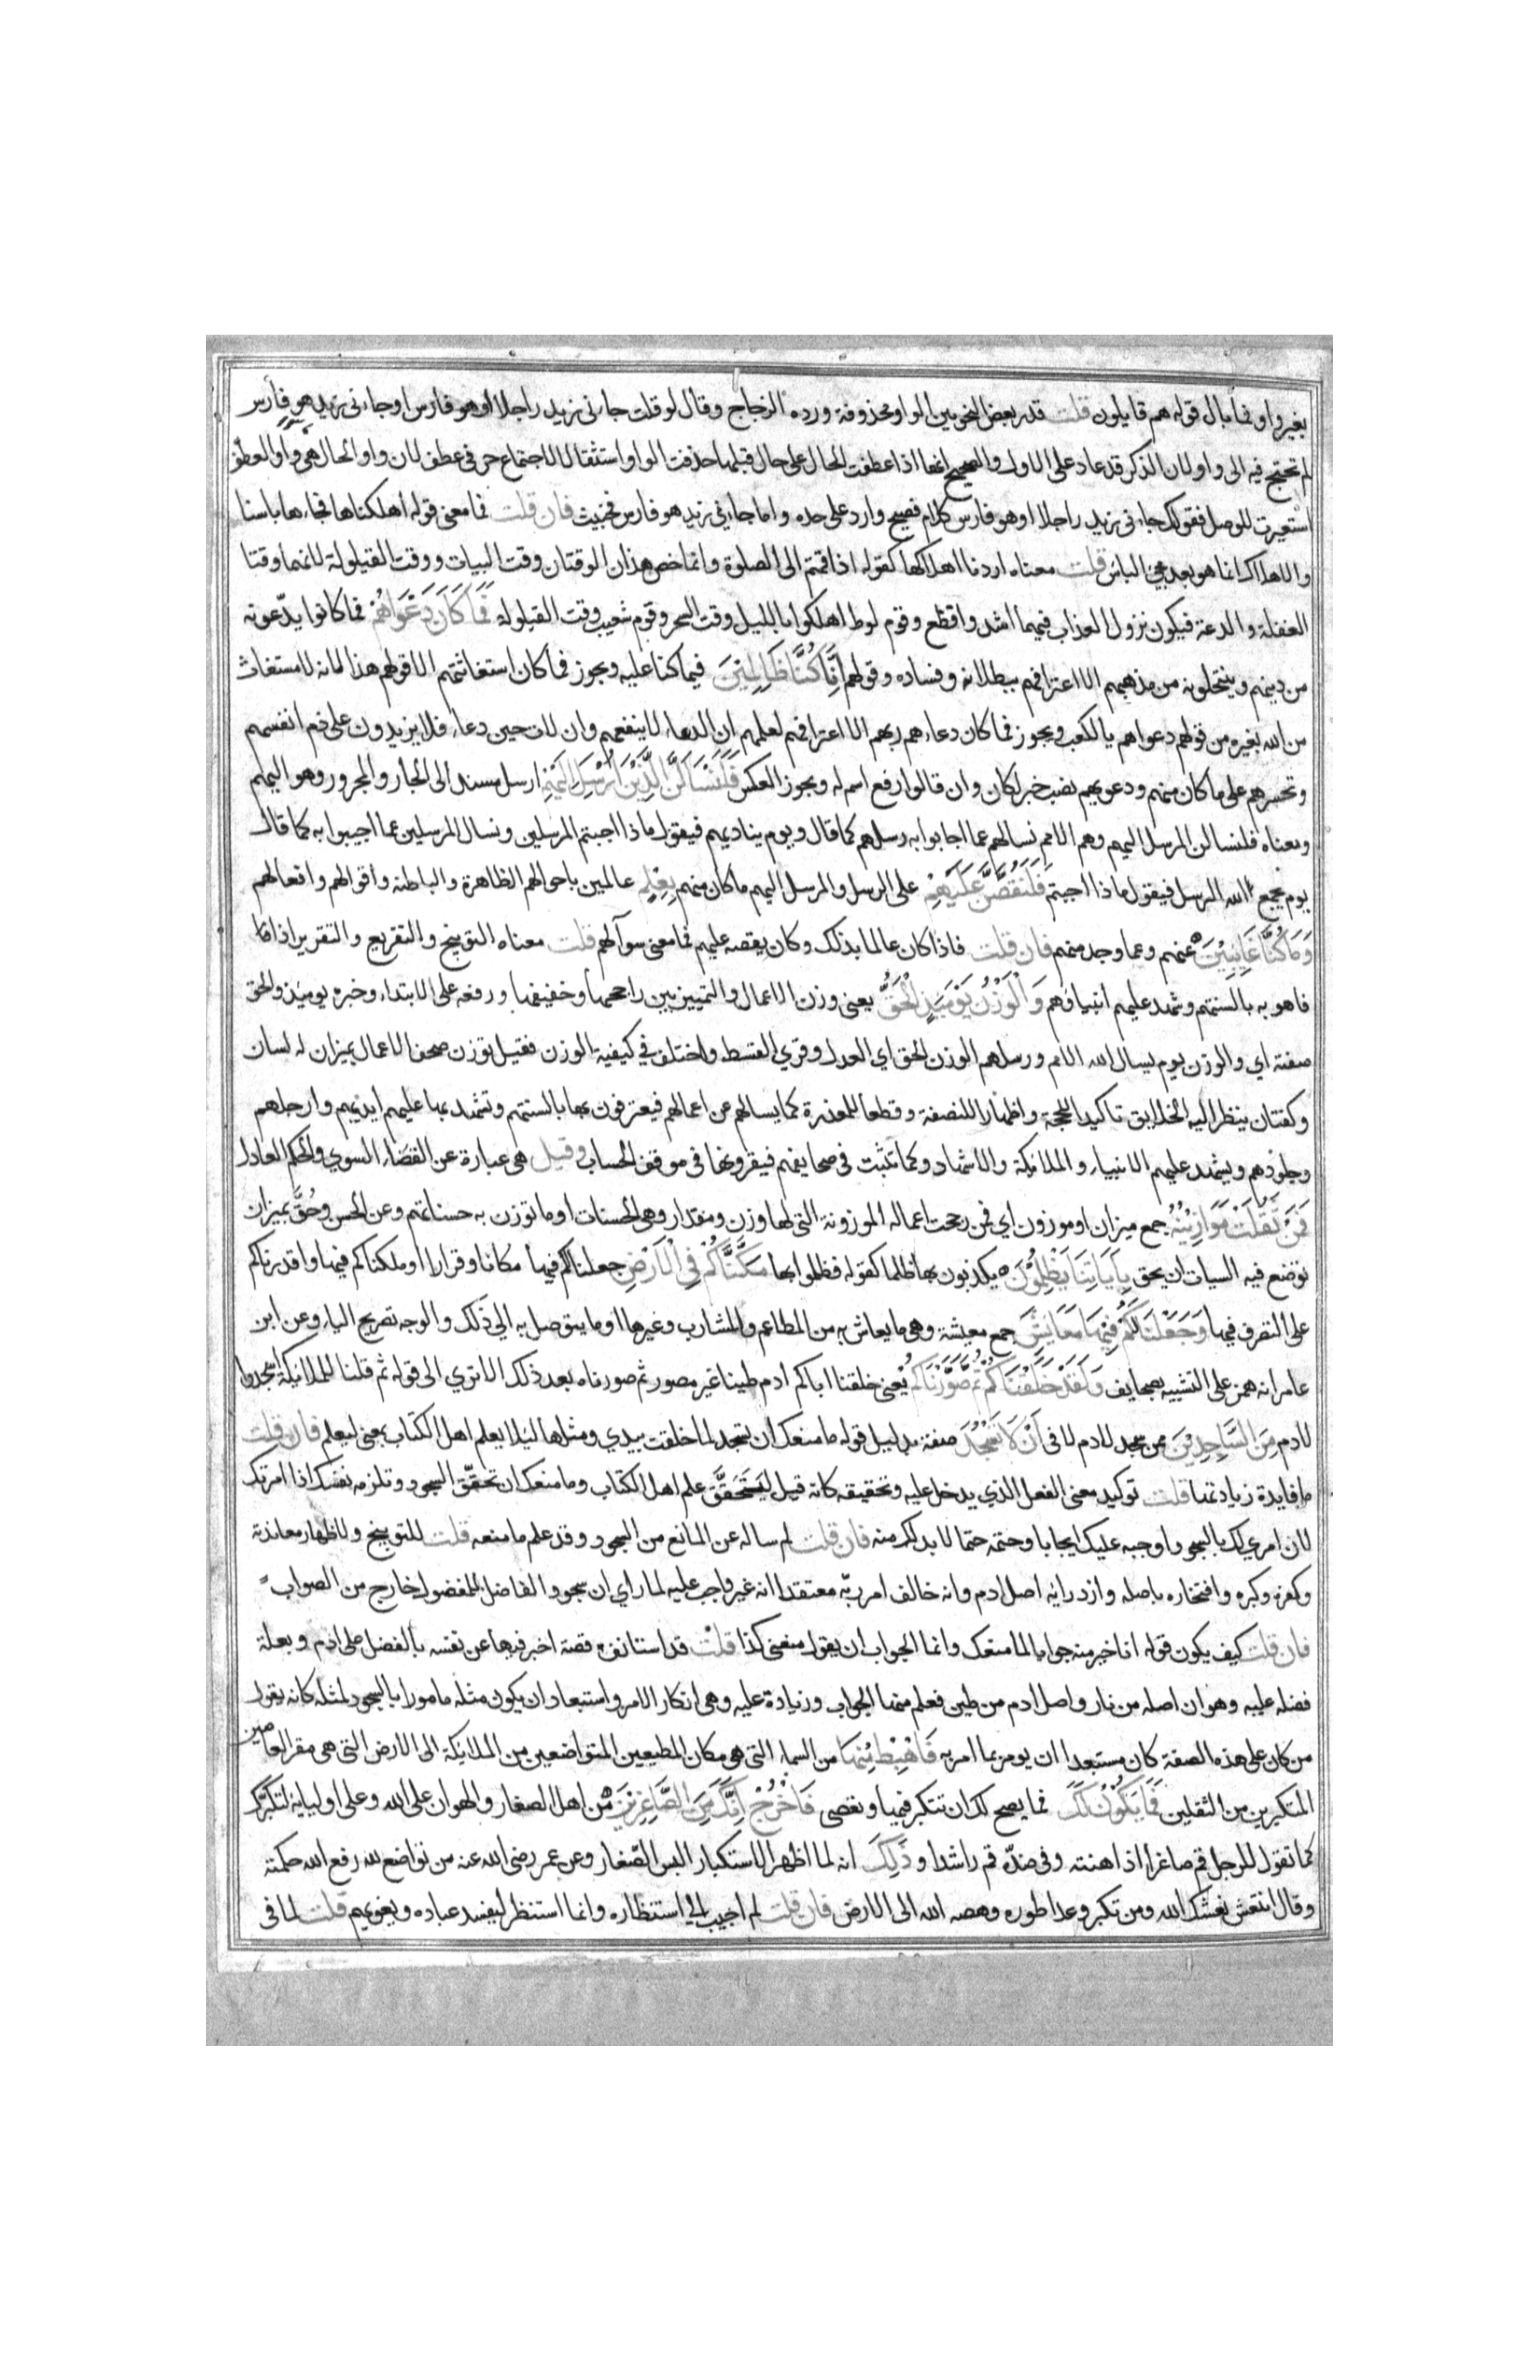 بغير واو فما بال قوله هم قايلون قلت قدر بعض النحويين الواو محذوفة ورده الزجاج وقال لو قلت جاءنى زيد راجلا او هو فارس او جاءنى زيد هو فارس
لم تحتج فيه الى واو لان الذكر قد عاد على الاول والصحيح انها اذا عطفت الحال على حال قبلها حذفت الواو استثقالا لاجتماع حرفى عطف لان واو الحال هى واو العطف
استعيرت للوصل فقولك جاءنى زيد راجلا او هو فارس كلام فصيح وارد على حده واما جاءنى زيد هو فارس فخبيث فان قلت فما معنى قوله اهلكناها فجاءها باسنا
والاهلاك انما هو بعد مجئ الباس قلت معناه اردنا اهلاكها كقوله اذا قمتم الى الصلوة وانما خص هذان الوقتان وقت البيات ووقت القيلولة لانهما وقتا
الغفلة والدعة فيكون نزول العذاب فيهما اشد وافظع وقوم لوط اهلكوا بالليل وقت السحر وقوم شعيب وقت القيلولة فَمَا كَانَ دَعْوَاهُمْ فما كانوا يدّعونه
من دينهم وينتحلونه من مذهبهم الا اعترافهم ببطلانه وفساده وقولهم اِنَّا كُنَّا ظَالِمِيْنَ فيما كنا عليه ويجوز فما كان استغاثتهم الا قولهم هذا لانه لا مستغاث
من الله بغيره من قولهم دعواهم يا لكعب ويجوز فما كان دعاءهم ربهم الا اعترافهم لعلمهم ان الدعاء لا ينفعهم وان لات حين دعاء فلا يزيدون على ذم انفسهم
وتحسرهم على ما كان منهم ودعويهم نصب خبر لكان وان قالوا رفع اسم له ويجوز العكس فَلَنَسْاَلَنَّ الَّذِيْنَ اُرْسِلَ اِلَيْهِمْ ارسل مسند الى الجار والمجرور وهو اليهم
ومعناه فلنسالن المرسل اليهم وهم الامم نسالهم عما اجابوا به رسلهم كما قال ويوم يناديهم فيقول ماذا اجبتم المرسلين ونسال المرسلين عما اجيبوا به كما قال
يوم يجمع الله الرسل فيقول ماذا اجبتم فَلَنَقُصَّنَّ عَلَيْهِمْ على الرسل والمرسل اليهم ما كان منهم بِعِلْمٍ عالمين باحوالهم الظاهرة والباطنة واقوالهم وافعالهم
وَمَا كُنَّا غَايِبِيْنَ عنهم وعما وجد منهم فان قلت فاذا كان عالما بذلك وكان يقصه عليهم فما معنى سوآلهم قلت معناه التوبيخ والتقريع والتقرير اذا فا
فاهو به بالسنتهم وشهد عليهم انبياؤهم وَالْوَزْنُ يَوْمَيِذٍ الْحَقُّ يعنى وزن الاعمال والتمييز بين راجحها وخفيفها ورفعه على الابتداء وخبره يوميذ والحق
صفته اي والوزن يوم يسال الله الامم ورسلهم الوزن الحق اي العدل وقري القسط واختلف في كيفية الوزن فقيل توزن صحف الاعمال بميزان له لسان
وكفتان ينظر اليه الخلايق تاكيدا للحجة واظهارا للنصفة وقطعا للمعذرة كما يسالهم عن اعمالهم فيعترفون بها بالسنتهم وتشهد بها عليهم ايديهم وارجلهم
وجلودهم ويشهد عليهم الانبياء والملائكة والاشهاد وكما تثبت فى صحايفهم فيقرونها فى موقف الحساب وقيل هى عبارة عن القضاء السوي والحكم العادل
فَمَنْ ثَقُلَتْ مَوَازِيْنُهُ جمع ميزان او موزون اي فمن رجحت اعماله الموزونة التى لها وزن ومقدار وهى الحسنات او ما توزن به حسناتهم وعن الحسن وحُقَّ بميزان
توضع فيه السيات ان يحق بِاٰيَاتِنَا يَظْلِمُوْنَ يكذبون بها ظلما كقوله فظلموا بها مَكَّنَّاكُمْ فِى الْاَرْضِ جعلنا لكم فيها مكانا وقرارا او ملكناكم فيها واقدرناكم
على التصرف فيها وَجَعَلْنَا لَكُمْ فِيْهَا مَعَايِشَ جمع معيشة وهى ما يعاش به من المطاعم والمشارب وغيرها او ما يتوصل به الي ذلك والوجه تصريح الياء وعن ابن
عامر انه همز على التشبيه بصحايف وَلَقَدْ خَلَقْنَاكُمْ ثُمَّ صَوَّرْنَاكُمْ يعنى خلقنا اباكم ادم طينا غير مصور ثم صورناه بعد ذلك الا تري الى قوله ثم قلنا للملائكة اسجدوا
لادم مِنَ السَّاجِدِيْنَ ممن سجد لادم لا فى اَنْ لَا تَسْجُدَ صفة بدليل قوله ما منعك ان تسجد لما خلقت بيدي ومثلها ليلا يعلم اهل الكتاب بمعنى ليعلم فان قلت
ما فايدة زيادتها قلت توكيد معنى الفعل الذي يدخل عليه وتحقيقه كانه قيل لِيَتَحَقَّقَ علم اهل الكتاب وما منعك ان تحقّق السجود وتلزمه نفسك اذ امرتك
لان امري لك بالسجود اوجبه عليك ايجابا وحتمه حتما لا بد لك منه فان قلت لم ساله عن المانع من السجود وقد علم ما منعه قلت للتوبيخ ولاظهار معاندته
وكفره وكبره وافتخاره باصله وازدرائه اصل ادم وانه خالف امر ربّه معتقدا انه غير واجب عليه لما راي ان سجود الفاضل للمفضول خارج من الصواب
فان قلت كيف يكون قوله انا خير منه جوابا لما منعك وانما الجواب ان يقول منعنى كذا قلت قد استانف قصة اخبر فيها عن نفسه بالفضل على ادم وبعلة
فضله عليه وهو ان اصله من نار واصل ادم من طين فعلم منها الجواب وزيادة عليه وهى انكار الامر واستبعاد ان يكون مثله مامورا بالسجود لمثله كانه يقول
من كان على هذه الصفة كان مستبعدا ان يومر بما امر به فَاهْبِطْ مِنْهَا من السماء التى هى مكان المطيعين المتواضعين من الملايكة الى الارض التى هى مقر العاصين
المتكبرين من الثقلين فَمَا يَكُوْنُ لَكَ فما يصح لك ان تتكبر فيها وتعصى فَاخْرُجْ اِنَّكَ مِنَ الصَّاغِرِيْنَ من اهل الصغار والهوان على الله وعلى اوليايه لتكبرك
كما تقول للرجل قم صاغرا اذا اهنته وفى ضدّه قم راشدا وذَلِكَ انه لما اظهر الاستكبار البس الصّغار وعن عمر رضى الله عنه من تواضع لله رفع الله حكمته
وقال انتعش نعشك الله ومن تكبر وعدا طوره وهصه الله الى الارض فان قلت لم اجيب الي استنظاره وانما استنظر ليفسد عباده ويغويهم قلت لما فى